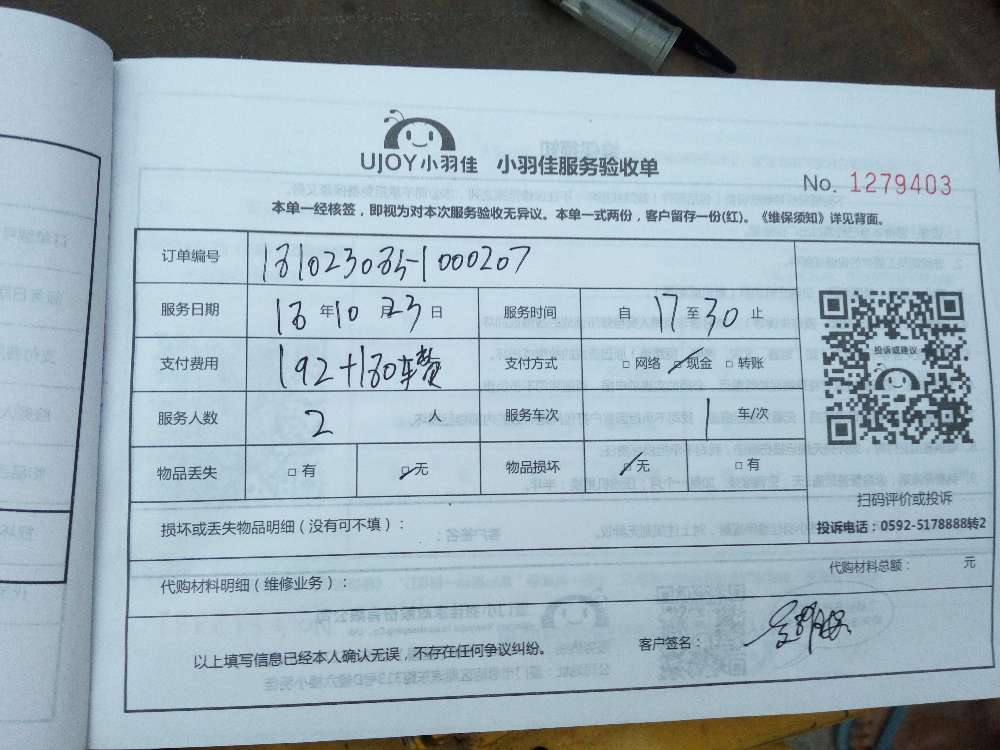 UJOY小羽佳 小羽佳服务验收单
No. 1279403
本单一经核签，即视为对本次服务验收无异议。本单一式两份，客户留存一份(红)。《维保须知》详见背面。
订单编号
服务日期 18 年 10 月 23 日 服务时间 自 17 至 30 止
支付费用 192+180车费 支付方式 □ 网络 □ 现金 □ 转账
服务人数 2 人 服务车次 1 车/次
物品丢失 □ 有 □ 无 物品损坏 □ 无 □ 有
投诉或建议
扫码评价或投诉
投诉电话：0592-5178888转2
损坏或丢失物品明细（没有可不填）：
代购材料明细（维修业务）：
代购材料总额： 元
以上填写信息已经本人确认无误，不存在任何争议纠纷。
客户签名：